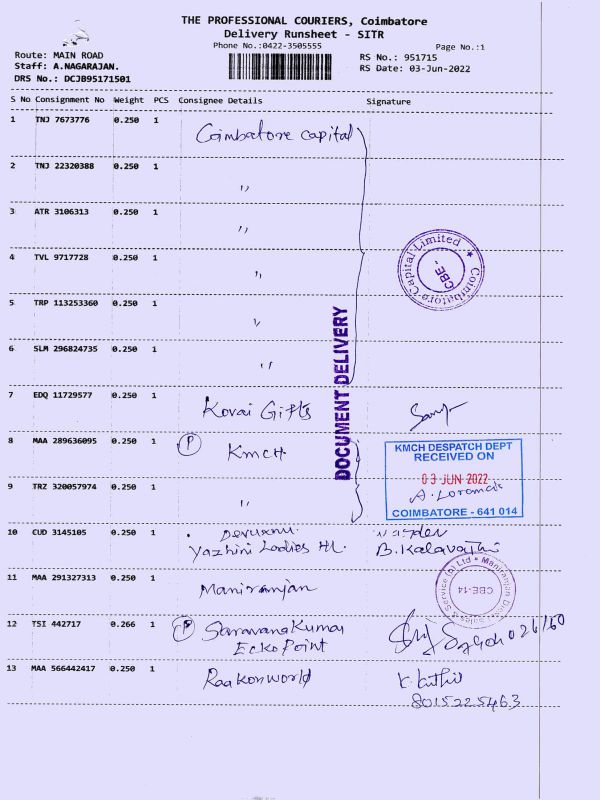 THE PROFESSIONAL COURIERS, Coimbatore
Delivery Runsheet - SITR
Phone No.:0422-3505555
Page No.:1
Route: MAIN ROAD
Staff: A.NAGARAJAN.
DRS No.: DCJB95171501
RS No.: 951715
RS Date: 03-Jun-2022
S No Consignment No Weight PCS Consignee Details Signature
1 TNJ 7673776 0.250 1 Coimbatore capital
2 TNJ 22320388 0.250 1 "
3 ATR 3106313 0.250 1 "
4 TVL 9717728 0.250 1 "
Coimbatore Capital Limited ★
CBE -
5 TRP 113253360 0.250 1 "
6 SLM 296824735 0.250 1 "
DOCUMENT DELIVERY
7 EDQ 11729577 0.250 1 Kovai Gifts
8 MAA 289636095 0.250 1 P KMCH
KMCH DESPATCH DEPT
RECEIVED ON
03 JUN 2022
COIMBATORE - 641 014
9 TRZ 320057974 0.250 1 "
10 CUD 3145105 0.250 1
Yazhini Ladies HL. B. Kalavathi
11 MAA 291327313 0.250 1 Maniranjan
CBE-14
12 TSI 442717 0.266 1 P Saravana Kumar
Ecko Point
13 MAA 566442417 0.250 1 Raakonworld
8015225463